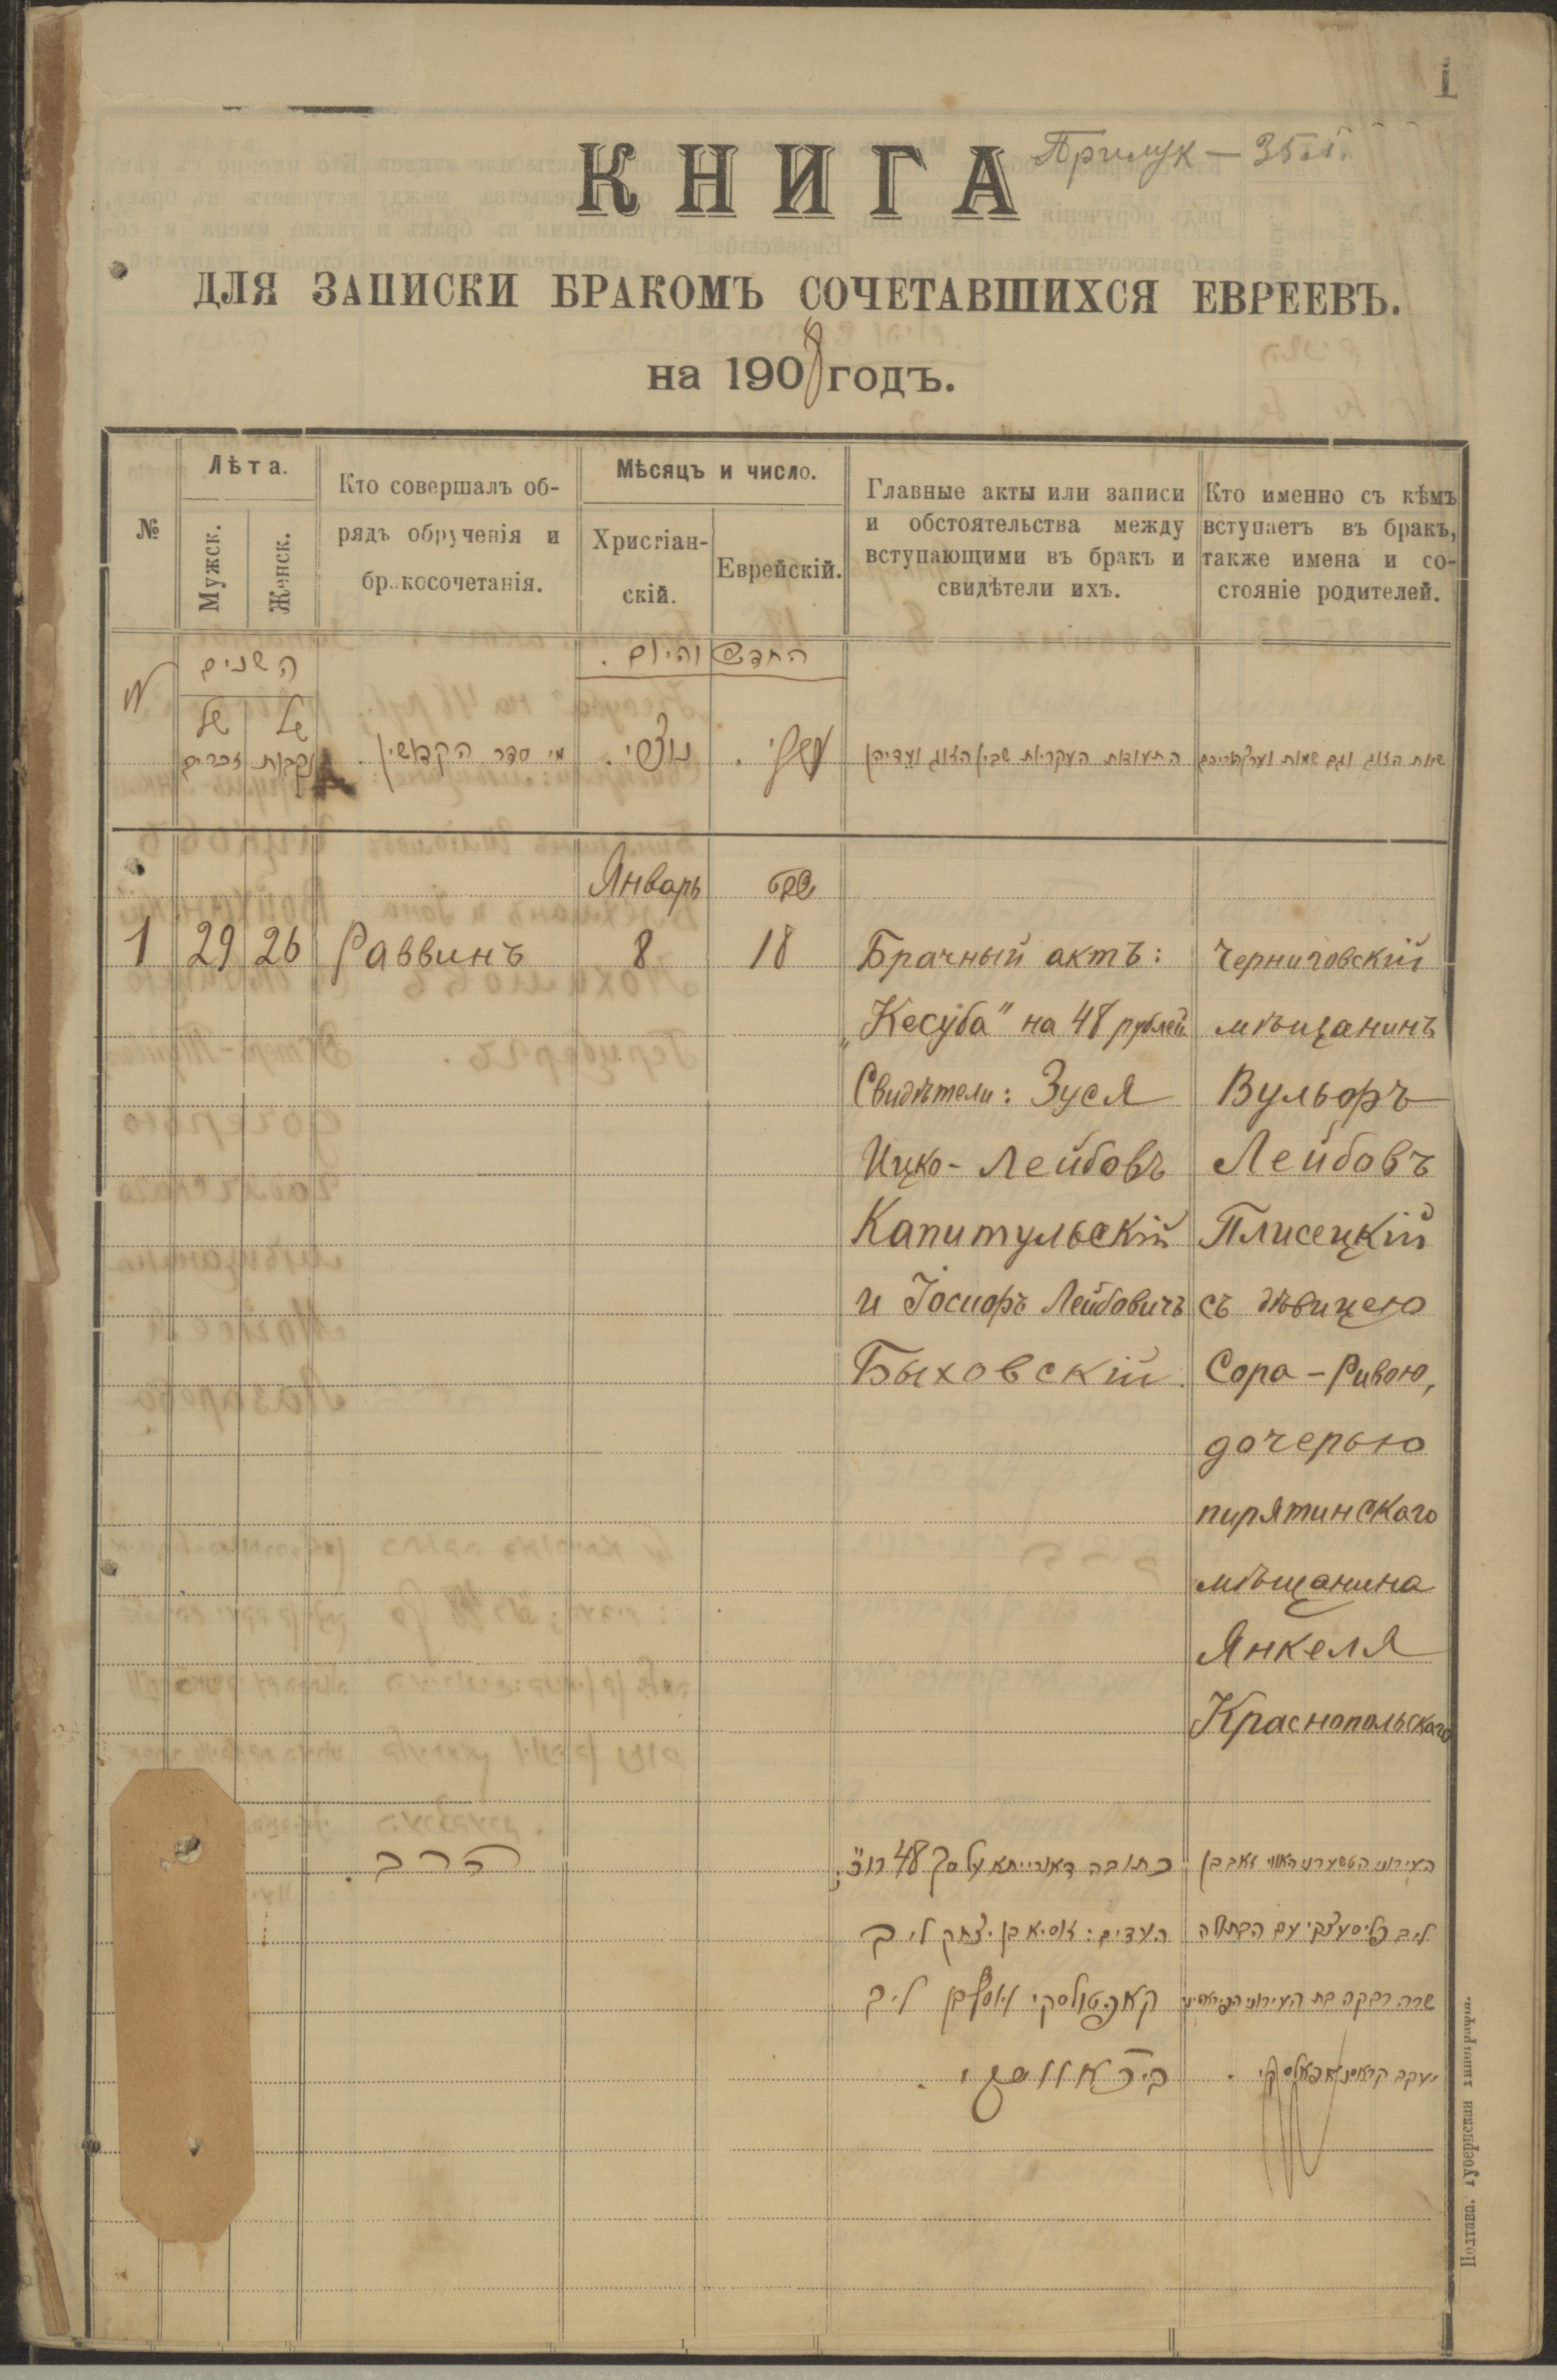 1
КНИГА
Прилук — 35
ДЛЯ ЗАПИСКИ БРАКОМЪ СОЧЕТАВШИХСЯ ЕВРЕЕВЪ.
на 1908 годъ.
№
Лѣта.
Мужск.
Женск.
Кто совершалъ об-
рядъ обрученія и
бракосочетанія.
Мѣсяцъ и число.
Христіан-
скій.
Еврейскій.
Главные акты или записи
и обстоятельства между
вступающими въ бракъ и
свидѣтели ихъ.
Кто именно съ кѣмъ
вступаетъ въ бракъ,
также имена и со-
стояніе родителей.
השנים
החדש והיום .
של זכרים
של נקבות
מי סדר הקדושין .
נוצרי .
התעודות העקריות שבין הזוג ועדיהן
שמות הזוג וגם שמות
Январь
שבט
1 29 26 Раввинъ 8 18
Брачный актъ:
„Кесуба" на 48 рублей
Свидѣтели: Зуся
Ицко-Лейбовъ
Капитульскій
и Іосифъ Лейбовичъ
Быховскій.
Черниговскій
мѣщанинъ
Вульфъ
Лейбовъ
Плисецкій
съ дѣвицею
Сора-Ривою,
дочерью
пирятинскаго
мѣщанина
Янкеля
Краснопольскаго
הרב .
כתובה דאורייתא על סך 48 רו"כ;
העדים: זוסיא בן יצחק ליב
קאפיטולסקי ויוסף בן ליב
העירוני זאב בן
ליב פליסעצקי עם הבתולה
שרה רבקה בת העירוני
יעקב
Полтава. Губернская типографія.